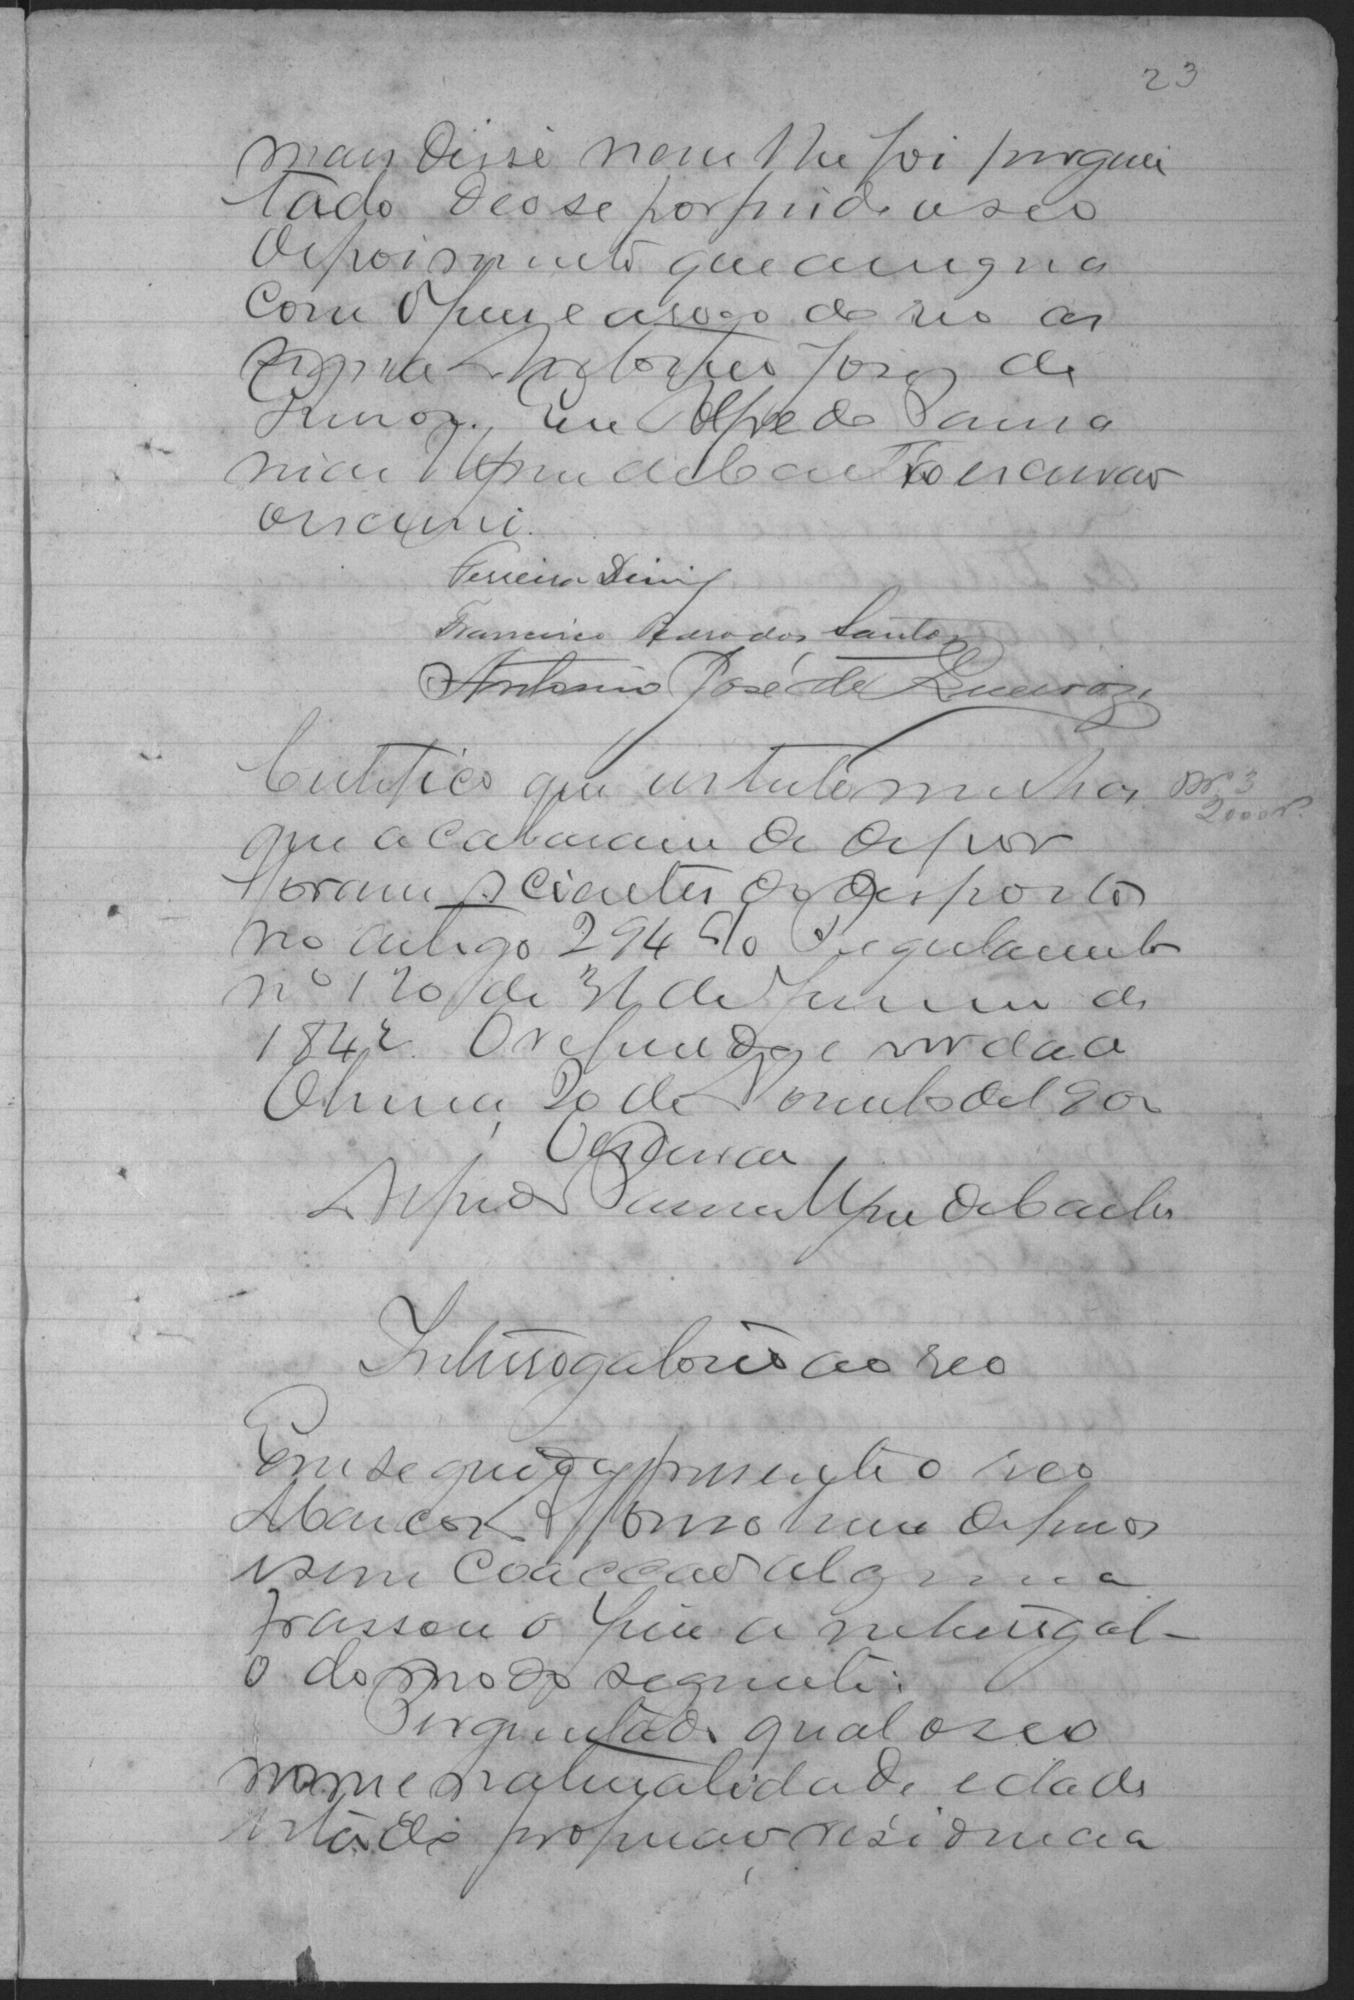 23
mais disse nem lhe foi pergun
tado deose por findo o seo
depoimento que assigna
com o Juiz e a rogo do reo as
signa Antonio José de
Queiroz. Eu Alfredo
escrivão
escrevi.
Ferreira Diniz
Francisco dos Santos
Antonio José de Queiroz
Certifico que as testemunhas
que acabaram de depor
foram scientes do disposto
no artigo 294 do Regulamento
nº 120 de 31 de Janeiro de
1842. O referido é verdade
20 de de 190
O Escrivão
Alfredo
Nº 3
2000 r.
Interrogatorio ao reo
Em seguida presente o reo
Marcos Affonso livre de ferros
e sem coacção alguma
passou o Juiz a interrogal-
o do modo seguinte:
Perguntado qual o seo
nome naturalidade edade
estado profissão residencia